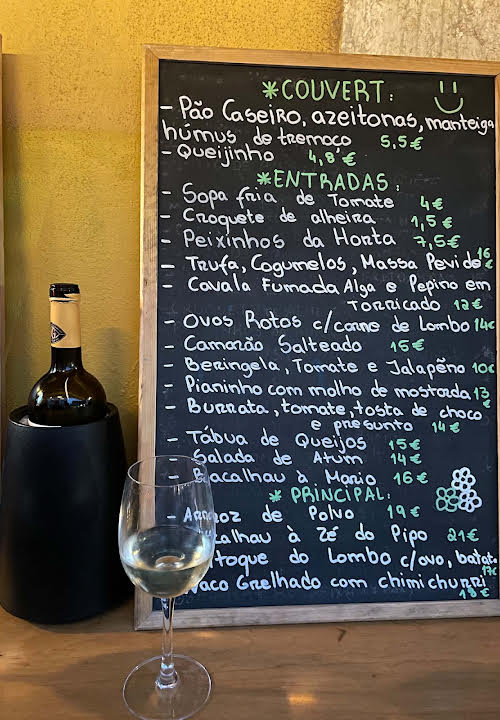 *COUVERT:
- Pão Caseiro, azeitonas, manteiga
húmus de tremoço 5,5€
- Queijinho 4,8€
*ENTRADAS:
- Sopa fria de Tomate 4€
- Croquete de alheira 1,5€
- Peixinhos da Horta 7,5€
- Trufa, Cogumelos, Massa Pevide 16€
- Cavala Fumada Alga e Pepino em
Torricado 12€
- Ovos Rotos c/carne de Lombo 14€
- Camarão Salteado 15€
- Beringela, Tomate e Jalapẽno 10€
- Pianinho com molho de mostarda 13€
- Burrata, tomate, tosta de choco
e presunto 14€
- Tábua de Queijos 15€
- Salada de Atum 14€
- Bacalhau à Mario 16€
* PRINCIPAL:
- Arroz de Polvo 19€
calhau à Zé do Pipo 21€
toque do Lombo c/ovo, batat. 17€
Vaco Grelhado com chimichurri
18€